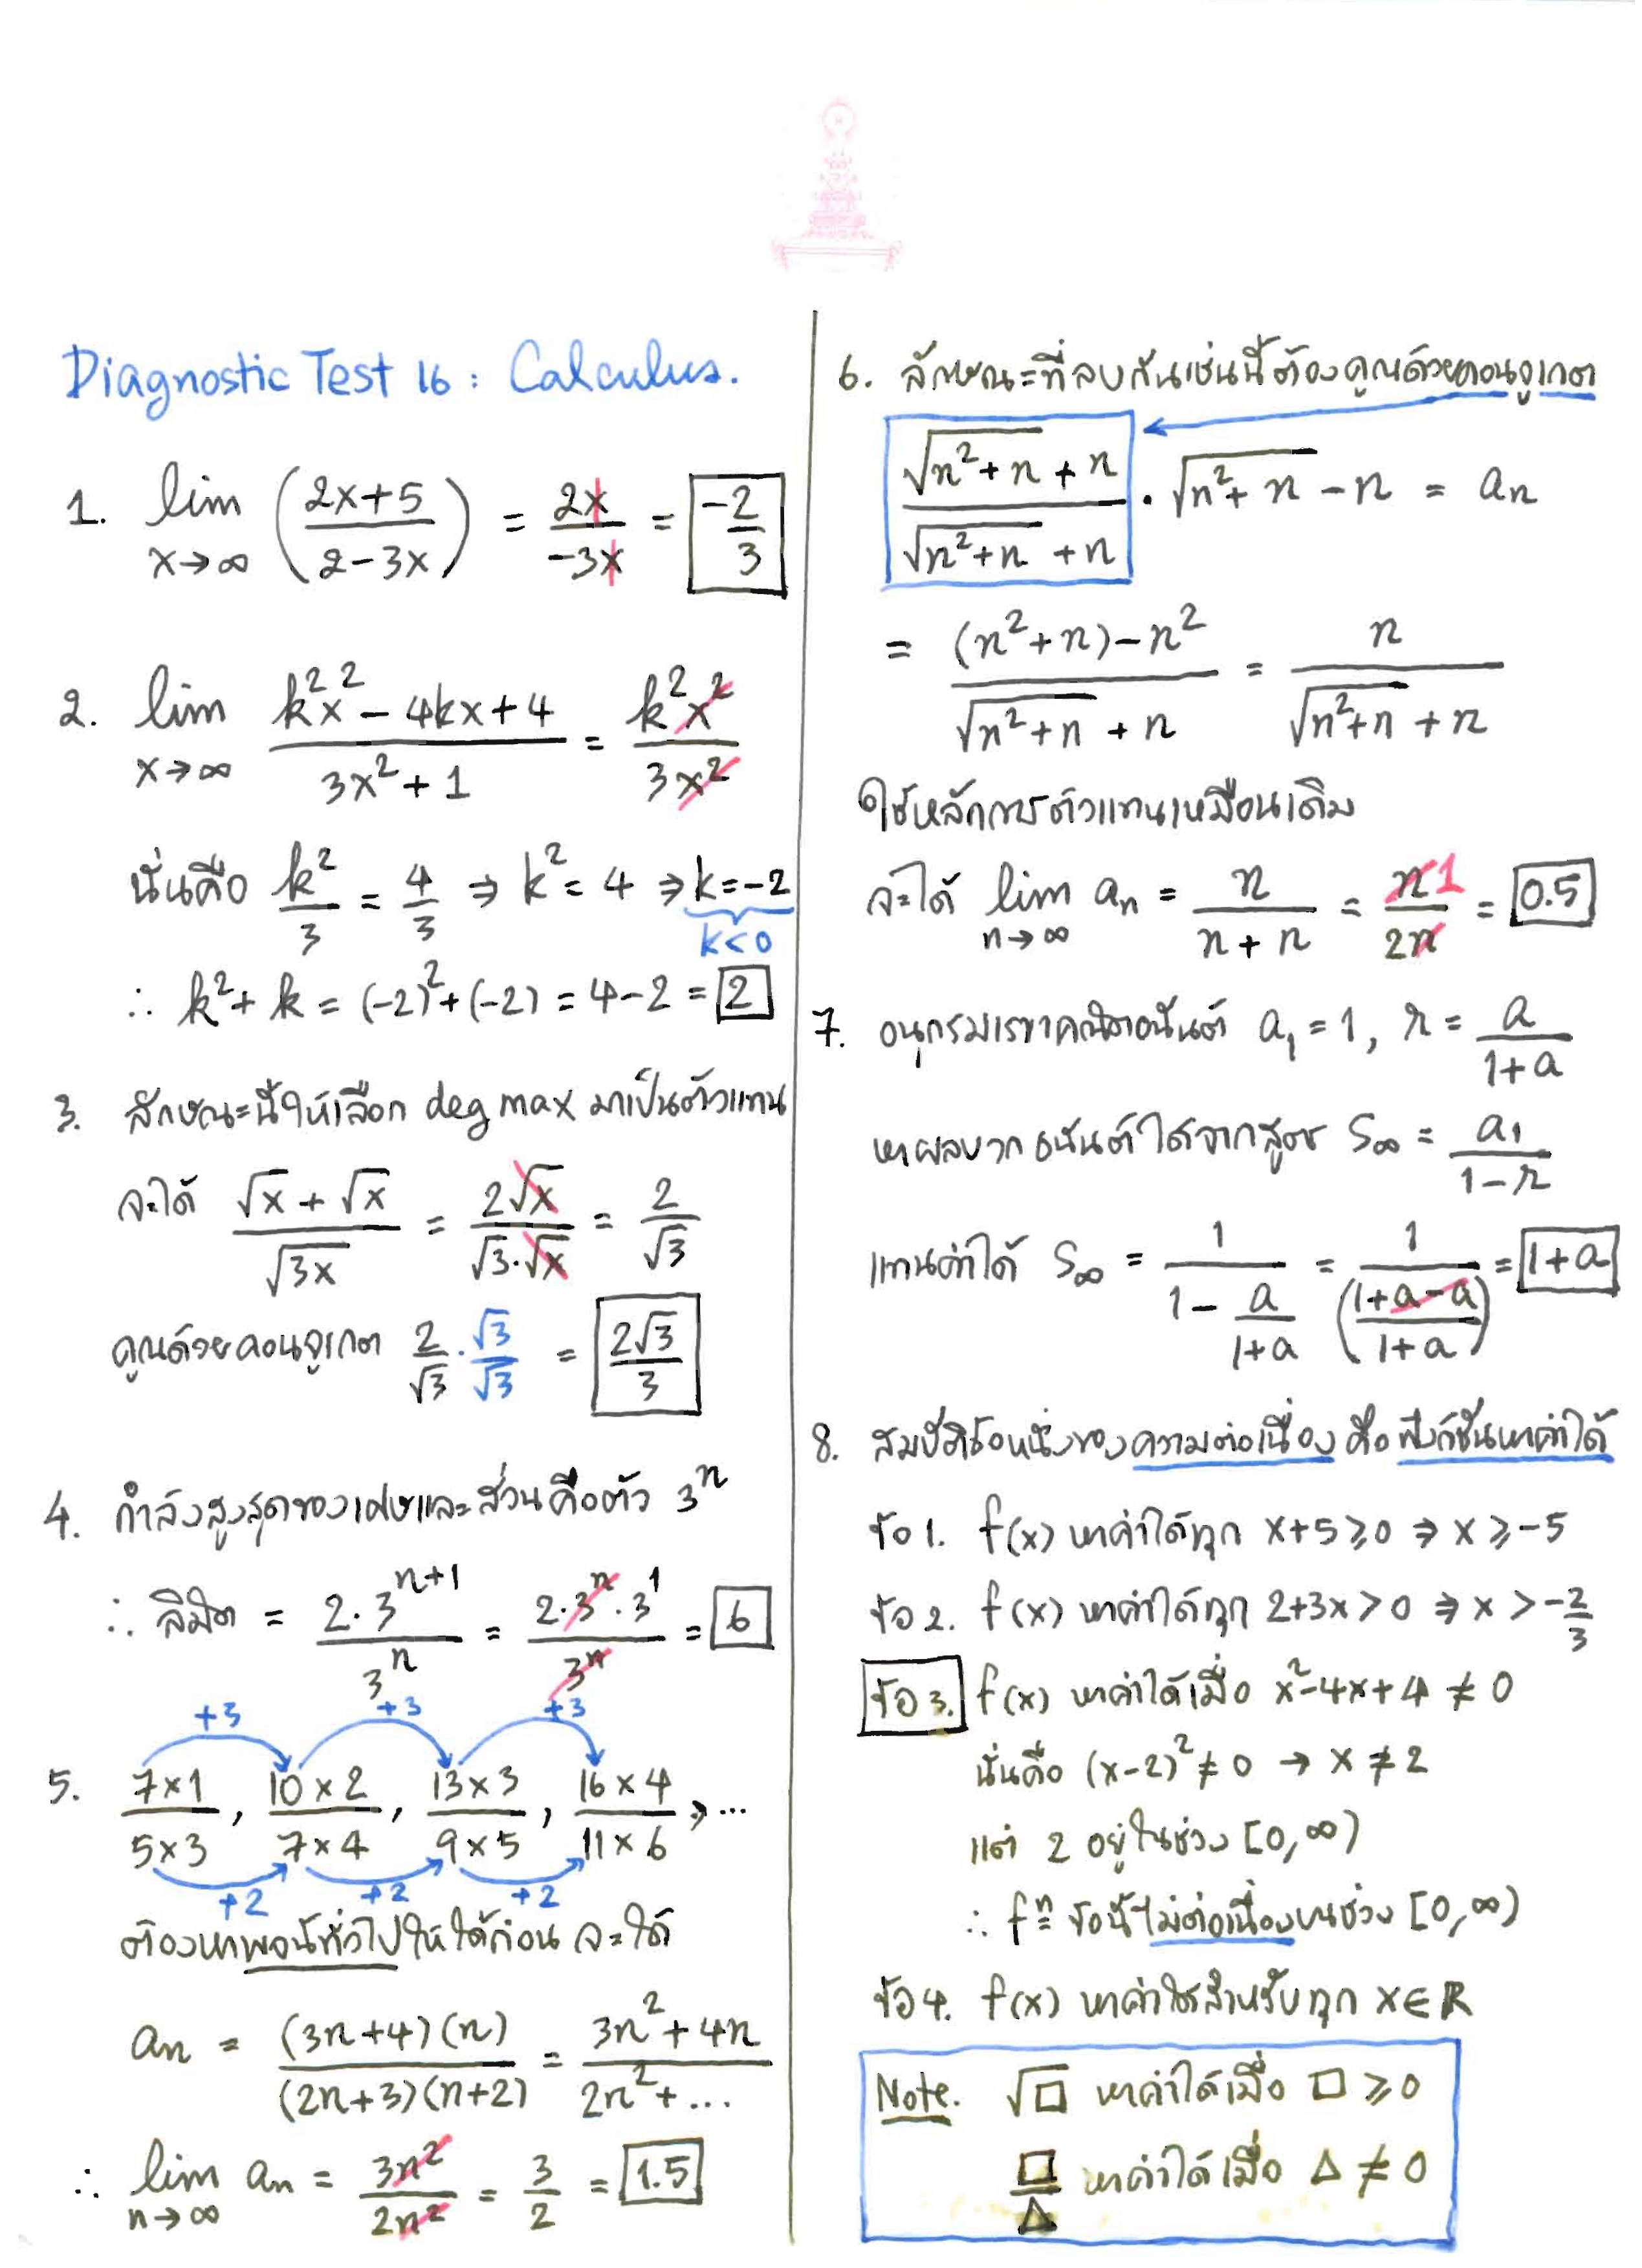 Diagnostic Test 16 : Calculus.
1. lim x→∞ ((2x+5)/(2-3x)) = 2x/-3x = -2/3
2. lim x→∞ (k²x² - 4kx + 4)/(3x²+1) = k²x²/3x²
นั่นคือ k²/3 = 4/3 ⇒ k² = 4 ⇒ k = -2
k<0
∴ k² + k = (-2)² + (-2) = 4 - 2 = 2
3. ลักษณะนี้ให้เลือก deg max มาเป็นตัวแทน
จะได้ (√x + √x)/√3x = 2√x/(√3·√x) = 2/√3
คูณด้วยคอนจูเกต 2/√3 · √3/√3 = 2√3/3
4. กำลังสูงสุดของเศษและส่วนคือตัว 3ⁿ
∴ ลิมิต = 2·3ⁿ⁺¹/3ⁿ = 2·3ⁿ·3¹/3ⁿ = 6
+3 +3 +3
5. (7×1)/(5×3), (10×2)/(7×4), (13×3)/(9×5), (16×4)/(11×6), ...
+2 +2 +2
ต้องหาพจน์ทั่วไปให้ได้ก่อน จะได้
an = (3n+4)(n)/(2n+3)(n+2) = (3n²+4n)/(2n²+...)
∴ lim n→∞ an = 3n²/2n² = 3/2 = 1.5
6. ลักษณะที่ลบกันเช่นนี้ ต้องคูณด้วยคอนจูเกต
(√n²+n + n)/(√n²+n + n) · √n²+n - n = an
= ((n²+n) - n²)/(√n²+n + n) = n/(√n²+n + n)
ใช้หลักการตัวแทนเหมือนเดิม
จะได้ lim n→∞ an = n/(n+n) = n 1/2n = 0.5
7. อนุกรมเรขาคณิตอนันต์ a₁ = 1, r = a/(1+a)
หาผลบวกอนันต์ได้จากสูตร S∞ = a₁/(1-r)
แทนค่าได้ S∞ = 1/(1 - a/(1+a)) = 1/((1+a-a)/(1+a)) = 1+a
8. สมบัติข้อหนึ่งของความต่อเนื่อง คือ ฟังก์ชันหาค่าได้
ข้อ 1. f(x) หาค่าได้ทุก x+5 ≥ 0 ⇒ x ≥ -5
ข้อ 2. f(x) หาค่าได้ทุก 2+3x > 0 ⇒ x > -2/3
ข้อ 3. f(x) หาค่าได้เมื่อ x²-4x+4 ≠ 0
นั่นคือ (x-2)² ≠ 0 → x ≠ 2
แต่ 2 อยู่ในช่วง [0,∞)
∴ fⁿ ข้อนี้ไม่ต่อเนื่องบนช่วง [0,∞)
ข้อ 4. f(x) หาค่าได้สำหรับทุก x∈R
Note. √□ หาค่าได้เมื่อ □ ≥ 0
□/△ หาค่าได้เมื่อ △ ≠ 0